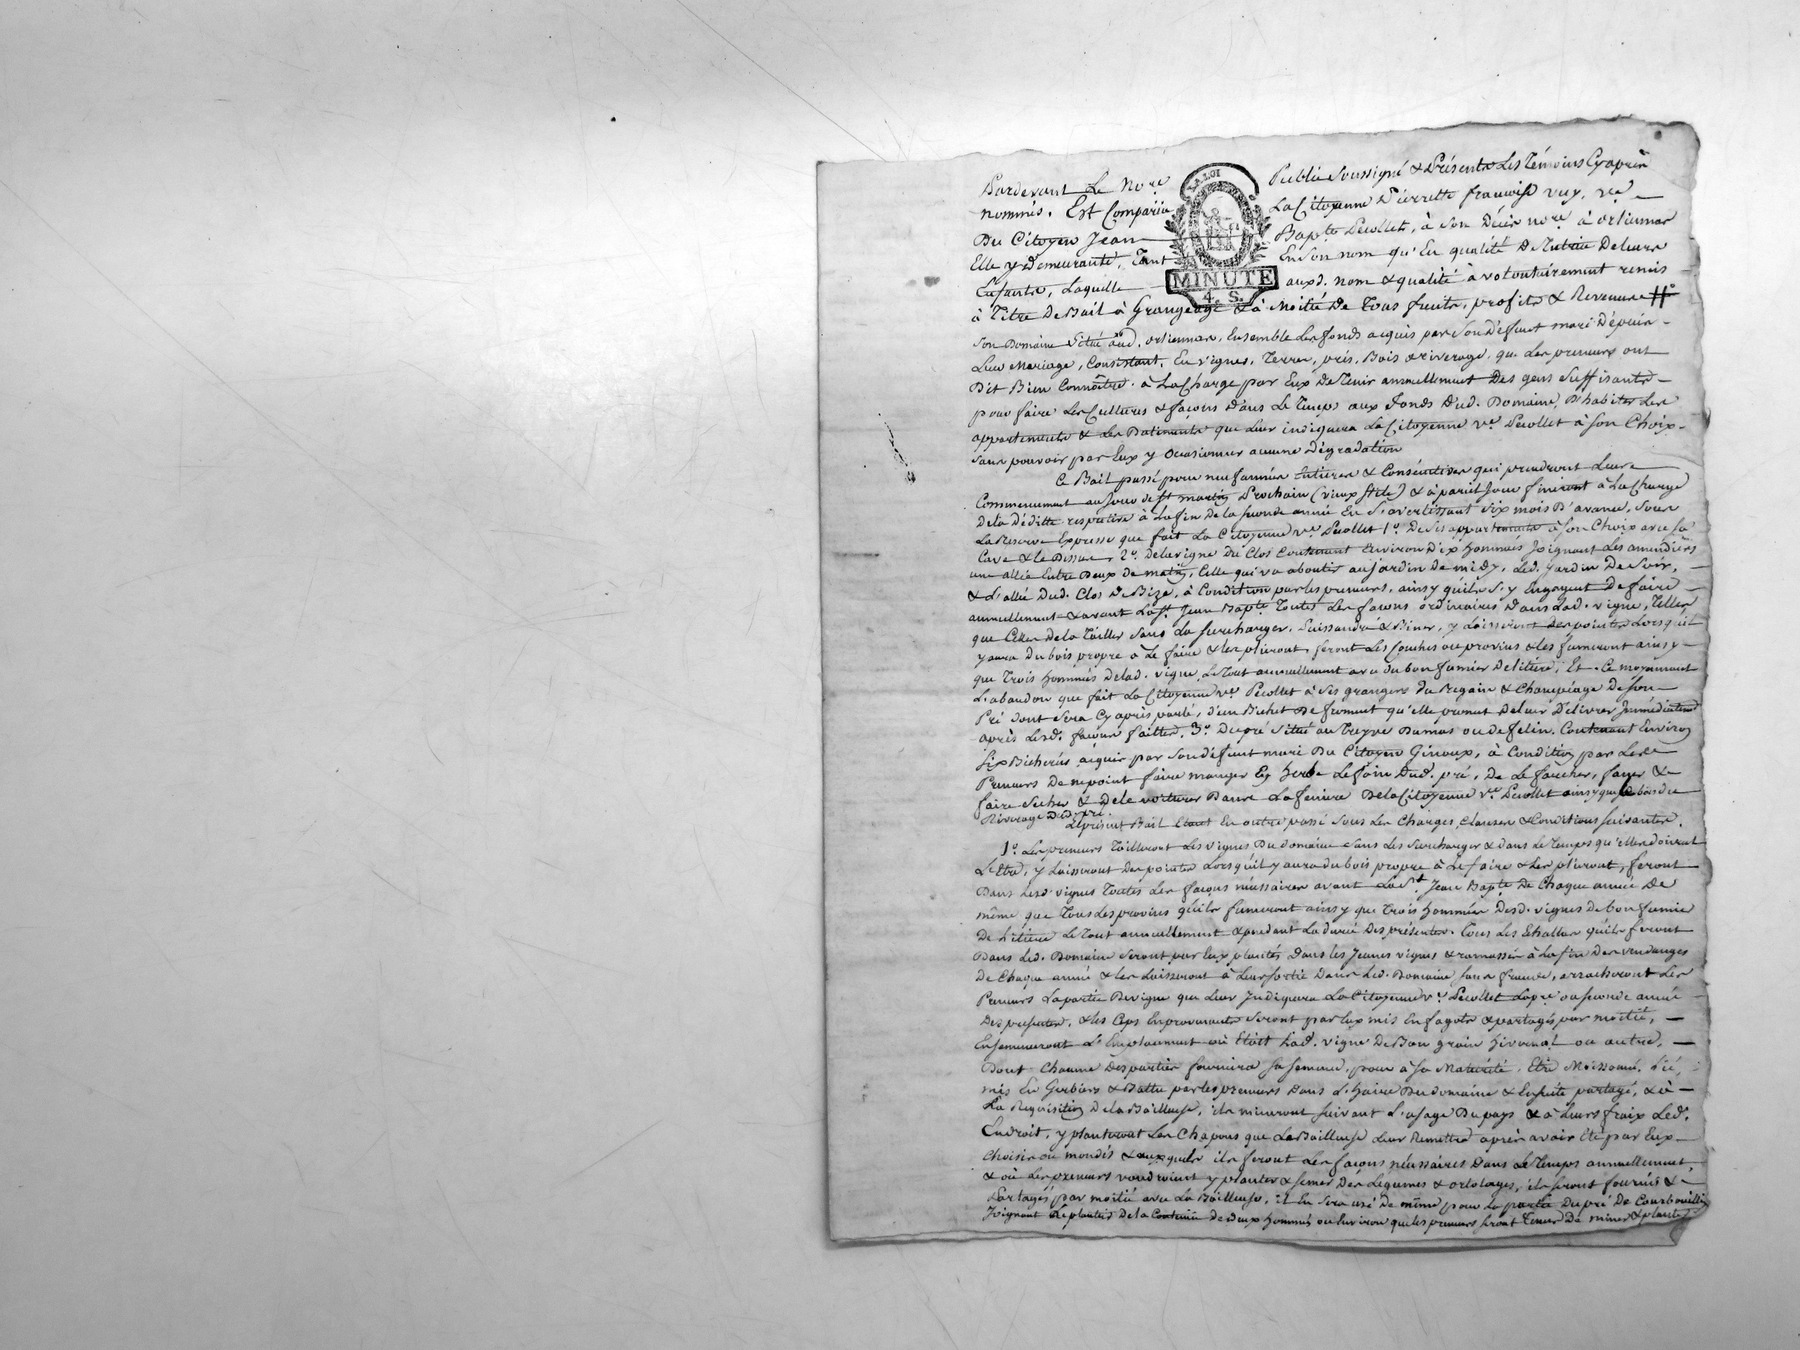 Pardevant Le No.re Public Soussigné & Présents Les Témoins Cyaprès
nommés. Est Comparüe La Citoyenne Pierrette françoise vuy, v.e
Du Citoyen Jean Bap.te Pecollet, à son Décès no.re à orliennas
Elle y Demeurante, Tant En son nom qu'En qualité De Tutrice De leurs
Enfants, Laquelle aux d. nom & qualité à volontairement remis
à Titre De Bail à Grangeage & à Moitié De Tous fruits, profits & Revenus
Son Domaine Situé aud. orliennas, Ensemble Les fonds acquis par Son Défunt mari Dépuis
Leur Mariage, Consistant, En vignes, Terres, prés, Bois & riverage, que Les preneurs ont
Dit Bien Connoître. à La Charge par Eux De Tenir annuellement Des gens Suffisants
pour faire Les Cultures & façons Dans Le Temps aux fonds Dud. Domaine, D'habiter Les
appartements & Les Batiments que Leur indiquera La Citoyenne v.e Pecollet à Son Choix
Sans pouvoir par Eux y Ocasionner aucune Dégradation
Ce Bail passé pour neuf années Entieres & Consécutives qui prendront Leurs
Commencement au Jour de S.t martin Prochain (vieux Stile) & à pareil Jour finiront à La Charge
de la Déditte respective à La fin de la seconde année En S'avertissant Six mois D'avance, Sous
La Reserve Expresse que fait La Citoyenne v.e Pecollet 1.o De Ses appartements à Son Choix avec Sa
Cave & le Dessus, 2.o De la vigne du Clos Contenant Environ Dix hommées Joignant Les amandiers
une allée Entre Deux de matin, Celle qui va aboutir au jardin De midy, Led. Jardin De Soir,
& L'allée Dud. Clos De Bize, à Condition par les preneurs, ainsy qu'ils S'y Engagent De faire
annuellement & avant La S.t Jean Bap.te Toutes Les façons ordinaires Dans Lad. vigne, Telles
que Celles De la Tailler Sans La Surcharger, y Laisseront des pointes Lorsqu'il
y aura Du bois propre à Le faire & les plieront, feront Les fosses ou provins & les fumeront ainsy
que Trois hommées De lad. vigne, Le Tout annuellement avec du bon fumier De litière, Et Ce moyennant
L'abandon que fait La Citoyenne v.e Pecollet à Ses grangers du Regain & Champéage De Son
Pré Dont Sera Cyaprès parlé, d'un Bichet De froment qu'elle promet De leur Délivrer Immédiatement
après Lesd. façons faittes. 3.o Du pré Situé au Treyve Damas ou de felin, Contenant Environ
Six Bicherées acquis par Son défunt mari Du Citoyen Giroux, à Condition par Les
Preneurs De ne point faire manger En herbe Le foin Dud. pré, De Le faucher, faner &
faire Secher & De le voiturer Dans La feniere De la Citoyenne v.e Pecollet ainsy que Le bois du
Riverage Dud. pré.
Le present Bail Etant En outre passé Sous Les Charges, Clauses & Conditions Suivantes.
1.o Les preneurs Tailleront Les vignes Du domaine Sans Les Surcharger & dans Le Temps qu'Elles doivent
L'Etre, y Laisseront Des pointes Lorsqu'il y aura du bois propre à Le faire & les plieront, feront
Dans Lesd. vignes Toutes Les façons nécessaires avant La S.t Jean Bap.te De Chaque année De
même que Tous Les provins qu'ils fumeront ainsy que Trois hommées Desd. vignes de bon fumier
De Litière Le Tout annuellement & pendant La durée Des présentes. Tous Les Echallas qu'ils feront
Dans Led. Domaine Seront par Eux plantés Dans les Jeunes vignes & ramassés à La fin Des vendanges
De Chaque année & Les Laisseront à Leur Sortie Dans Led. Domaine Sans fraude, arracheront Les
Preneurs La partie De vigne que Leur Indiquera La Citoyenne v.e Pecollet La p.re ou Seconde année
Des presentes, & les Ceps En provenants Seront par Eux mis En fagots & partagés par moitié,
Ensemenceront L'Emplacement où Etoit Lad. vigne De Bon grain hivernal ou autre,
Dont Chacune Des parties fournira Sa Semence, pour à Sa Maturité, Etre Moissoné, Lié,
mis En Gerbiers & Battu par les preneurs Dans L'haire Du domaine & Ensuite partagé, & à
La Requisition De la Bailleuse, ils mineront Suivant L'usage Du pays & à Leurs fraix Led.
Endroit, y planteront Les Chapons que La Bailleuse Leur Remettra après avoir Eté par Eux
Choisis ou mondés & auxquels ils feront Les façons nécessaires Dans Le Temps annuellement,
& où Les preneurs voudroient y planter & Semer Des Légumes & ortolages, ils Seront fournis &
Partagés par moitié avec La Bailleuse, il En Sera usé De même pour La partie Du pré De Courbouillis
Joignant de la Contenüe de Deux hommées ou Environ que les preneurs Seront Tenus De miner & planter
LA LOI
MINUTE
4. S.